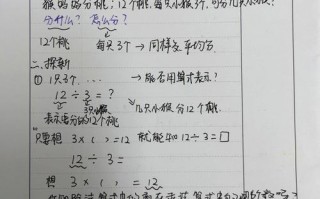 猴妈妈分桃；12个桃，每只小猴3个，可分几只小猴？
分什么？ 怎么分？
12个桃 每只3个 → 同样多、平均分
二、探新
① 1只3个 …… → 能否用算式表示？
12 ÷ 3 = ?
3只 几只小猴分12个桃
表示要分的12个桃
只要想 3 × ( ) = 12 就能知 12 ÷ 3 = □
12 ÷ 3 =
想 3 × ( ) = 12